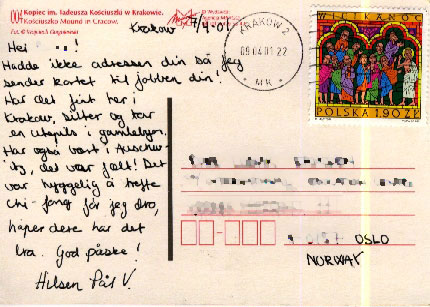 Kopiec im. Tadeusza Kościuszki w Krakowie.
Kościuszko Mound in Cracow.
Krakow 7/4-01
Hei !
Hadde ikke adressen din så jeg
sender kortet til jobben din!
Har det fint her i
Krakow, sitter og tar
en utepils i gamlebyen.
Har også vært i Auschw-
itz, det var fælt! Det
var hyggelig å treffe
før jeg dro,
håper dere har det
bra. God påske!
Hilsen Pål V.
KRAKÓW 2
09.04.01.22
MK
WIEK XIII
POLSKA 190 ZŁ
OSLO
NORWAY